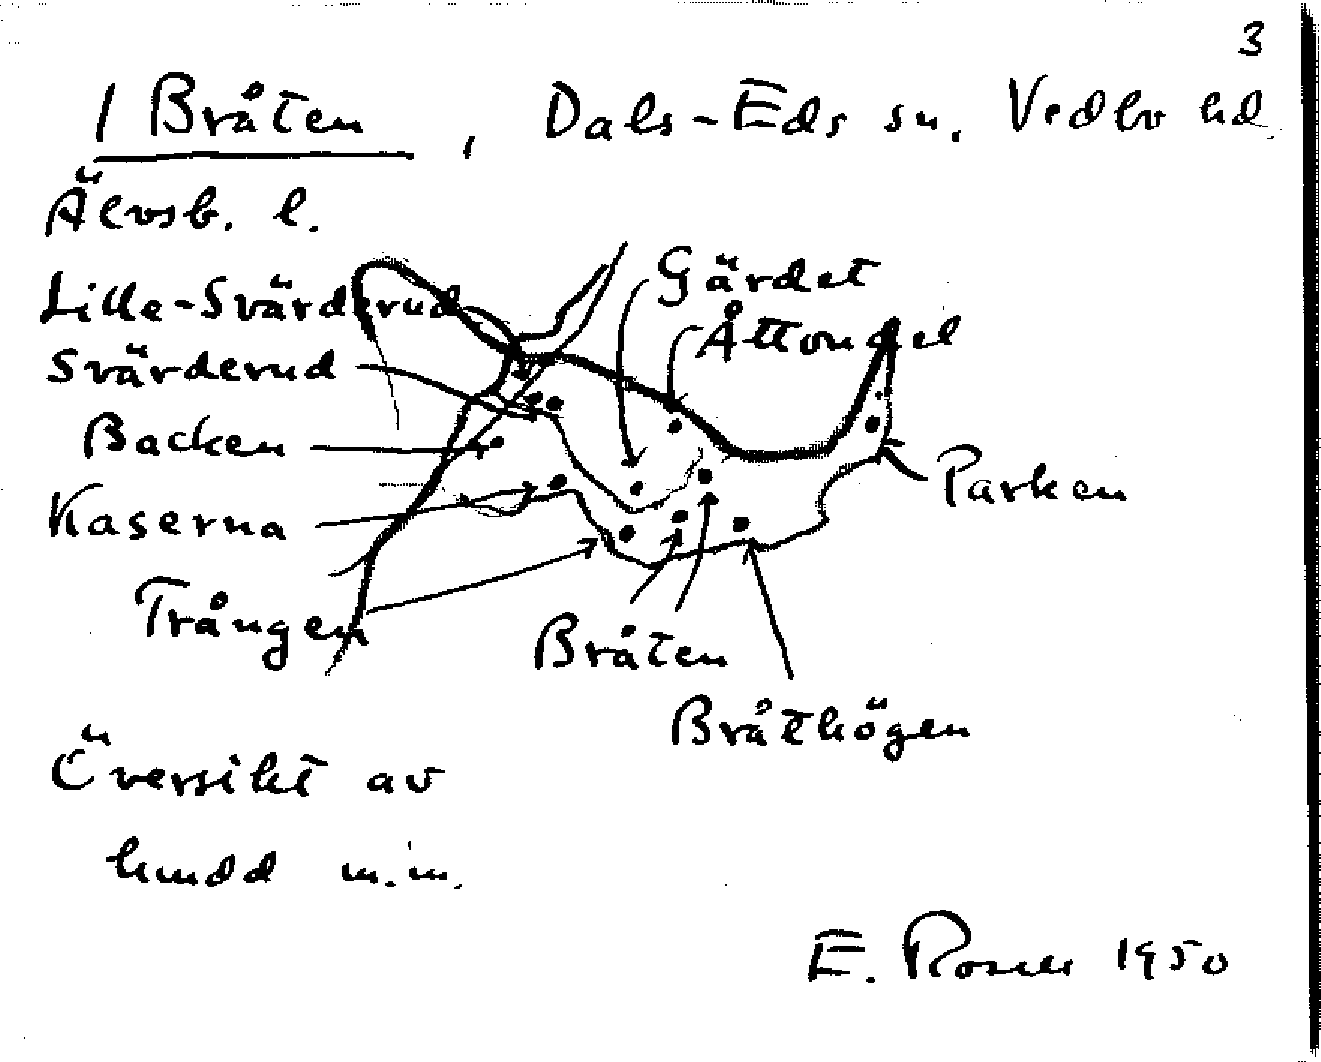 3
1 Bråten, Dals-Eds sn. Vedbo hd
Älvsb. l.
Lille-Svärderud
Gärdet
Åttondel
Svärderud
Backen
Parken
Kaserna
Trången
Bråten
Bråthögen
Översikt av
m.m.
E. 1950